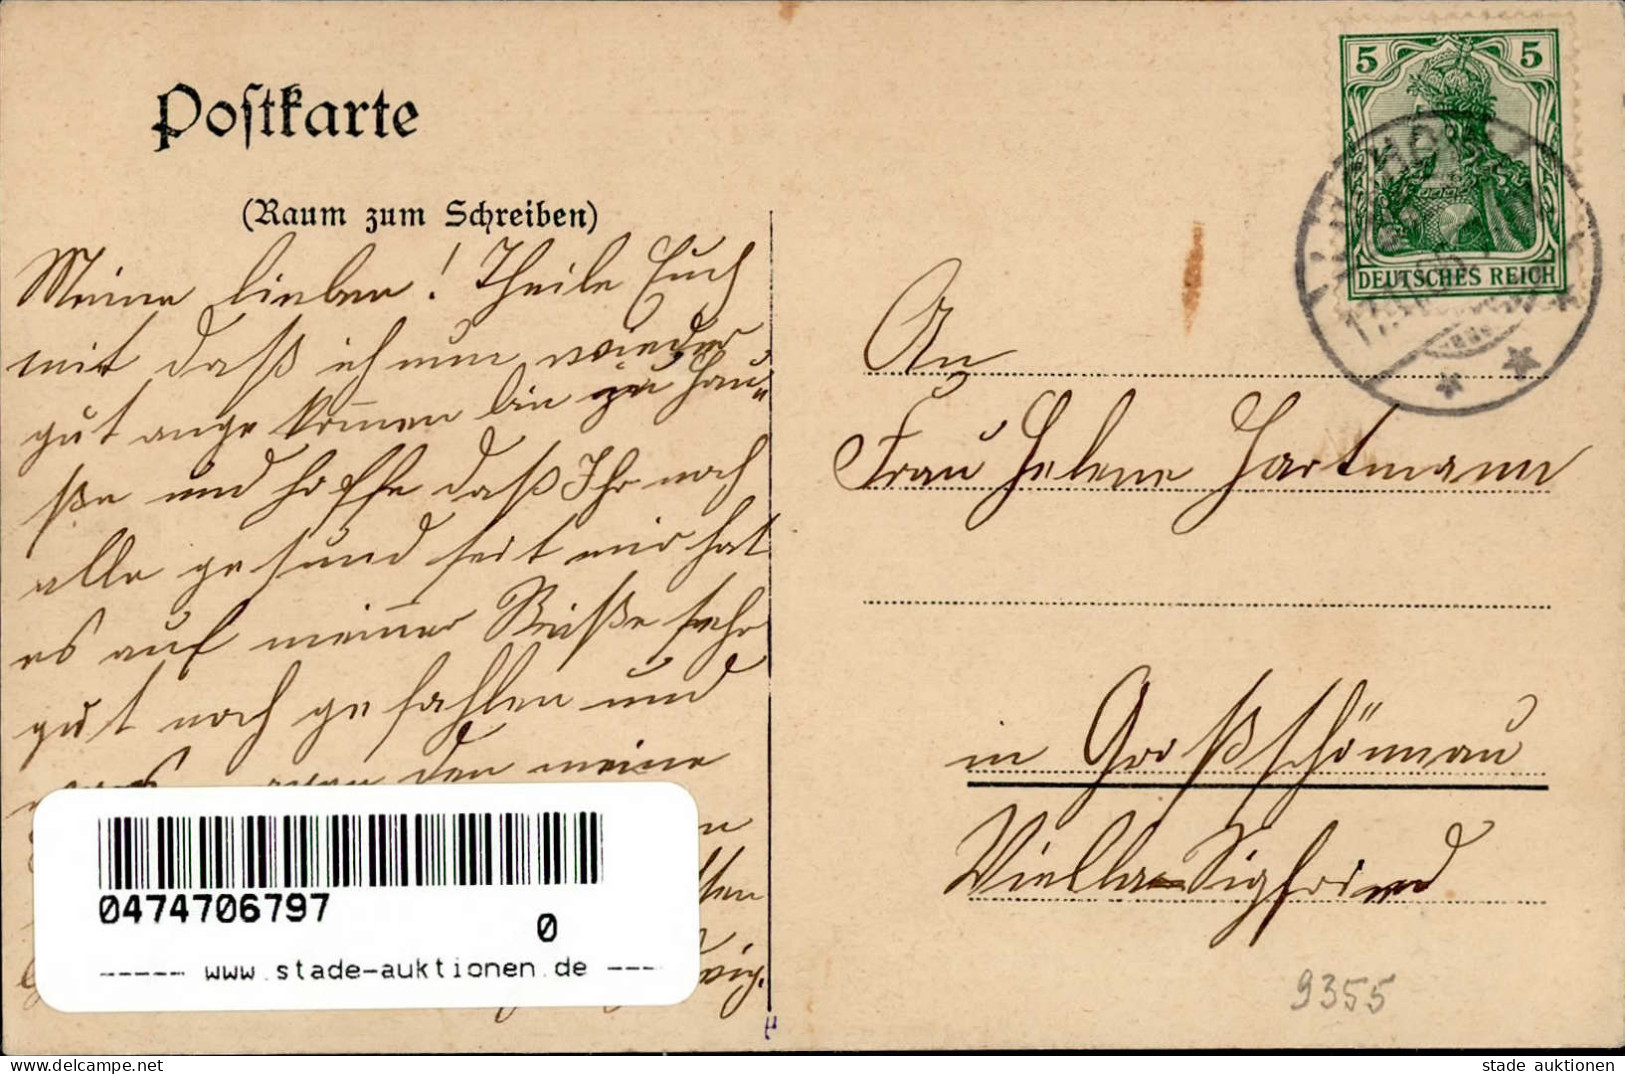 Postkarte
(Raum zum Schreiben)
Meine lieben! Theile Euch
mit daß ich nun wieder
gut angekommen bin zu Hau„
ße und hoffe daß Ihr noch
alle gesund seit mir hat
es auf meiner Reiße sehr
gut noch gefahlen und
den meine
5 5
DEUTSCHES REICH
An
Frau Helene Hartmann
in Großschönnau
Viella Sigfried
9355
0474706797
0
----- www.stade-auktionen.de ---
stade auktionen